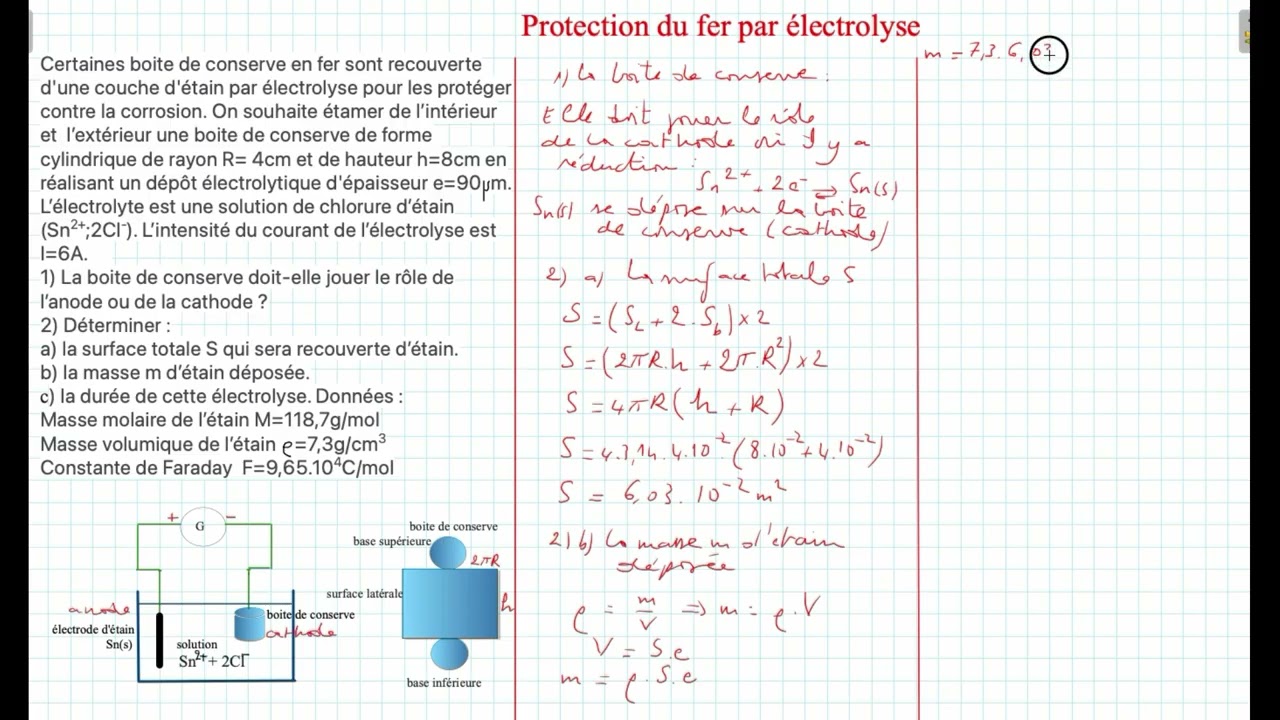 Protection du fer par électrolyse
Certaines boite de conserve en fer sont recouverte
d'une couche d'étain par électrolyse pour les protéger
contre la corrosion. On souhaite étamer de l'intérieur
et l'extérieur une boite de conserve de forme
cylindrique de rayon R= 4cm et de hauteur h=8cm en
réalisant un dépôt électrolytique d'épaisseur e=90μm.
L'électrolyte est une solution de chlorure d'étain
(Sn²⁺;2Cl⁻). L'intensité du courant de l'électrolyse est
I=6A.
1) La boite de conserve doit-elle jouer le rôle de
l'anode ou de la cathode ?
2) Déterminer :
a) la surface totale S qui sera recouverte d'étain.
b) la masse m d'étain déposée.
c) la durée de cette électrolyse. Données :
Masse molaire de l'étain M=118,7g/mol
Masse volumique de l'étain ρ=7,3g/cm³
Constante de Faraday F=9,65.10⁴C/mol
+ G −
anode
électrode d'étain
Sn(s)
solution
Sn²⁺+ 2Cl⁻
boite de conserve
cathode
boite de conserve
base supérieure
2πR
surface latérale
h
base inférieure
1) La boite de conserve :
Elle doit jouer le rôle
de la cathode où il y a
réduction :
Sn²⁺ + 2e⁻ ⇌ Sn(s)
Sn(s) se dépose sur la boite
de conserve (cathode)
2) a) La surface totale S
S = (S_L + 2.S_b) × 2
S = (2πR.h + 2π.R²) × 2
S = 4πR(h + R)
S = 4.3,14.4.10⁻²(8.10⁻² + 4.10⁻²)
S = 6,03.10⁻² m²
2) b) La masse m d'étain
déposée
ρ = m/V ⇒ m = ρ.V
V = S.e
m = ρ.S.e
m = 7,3.6,03